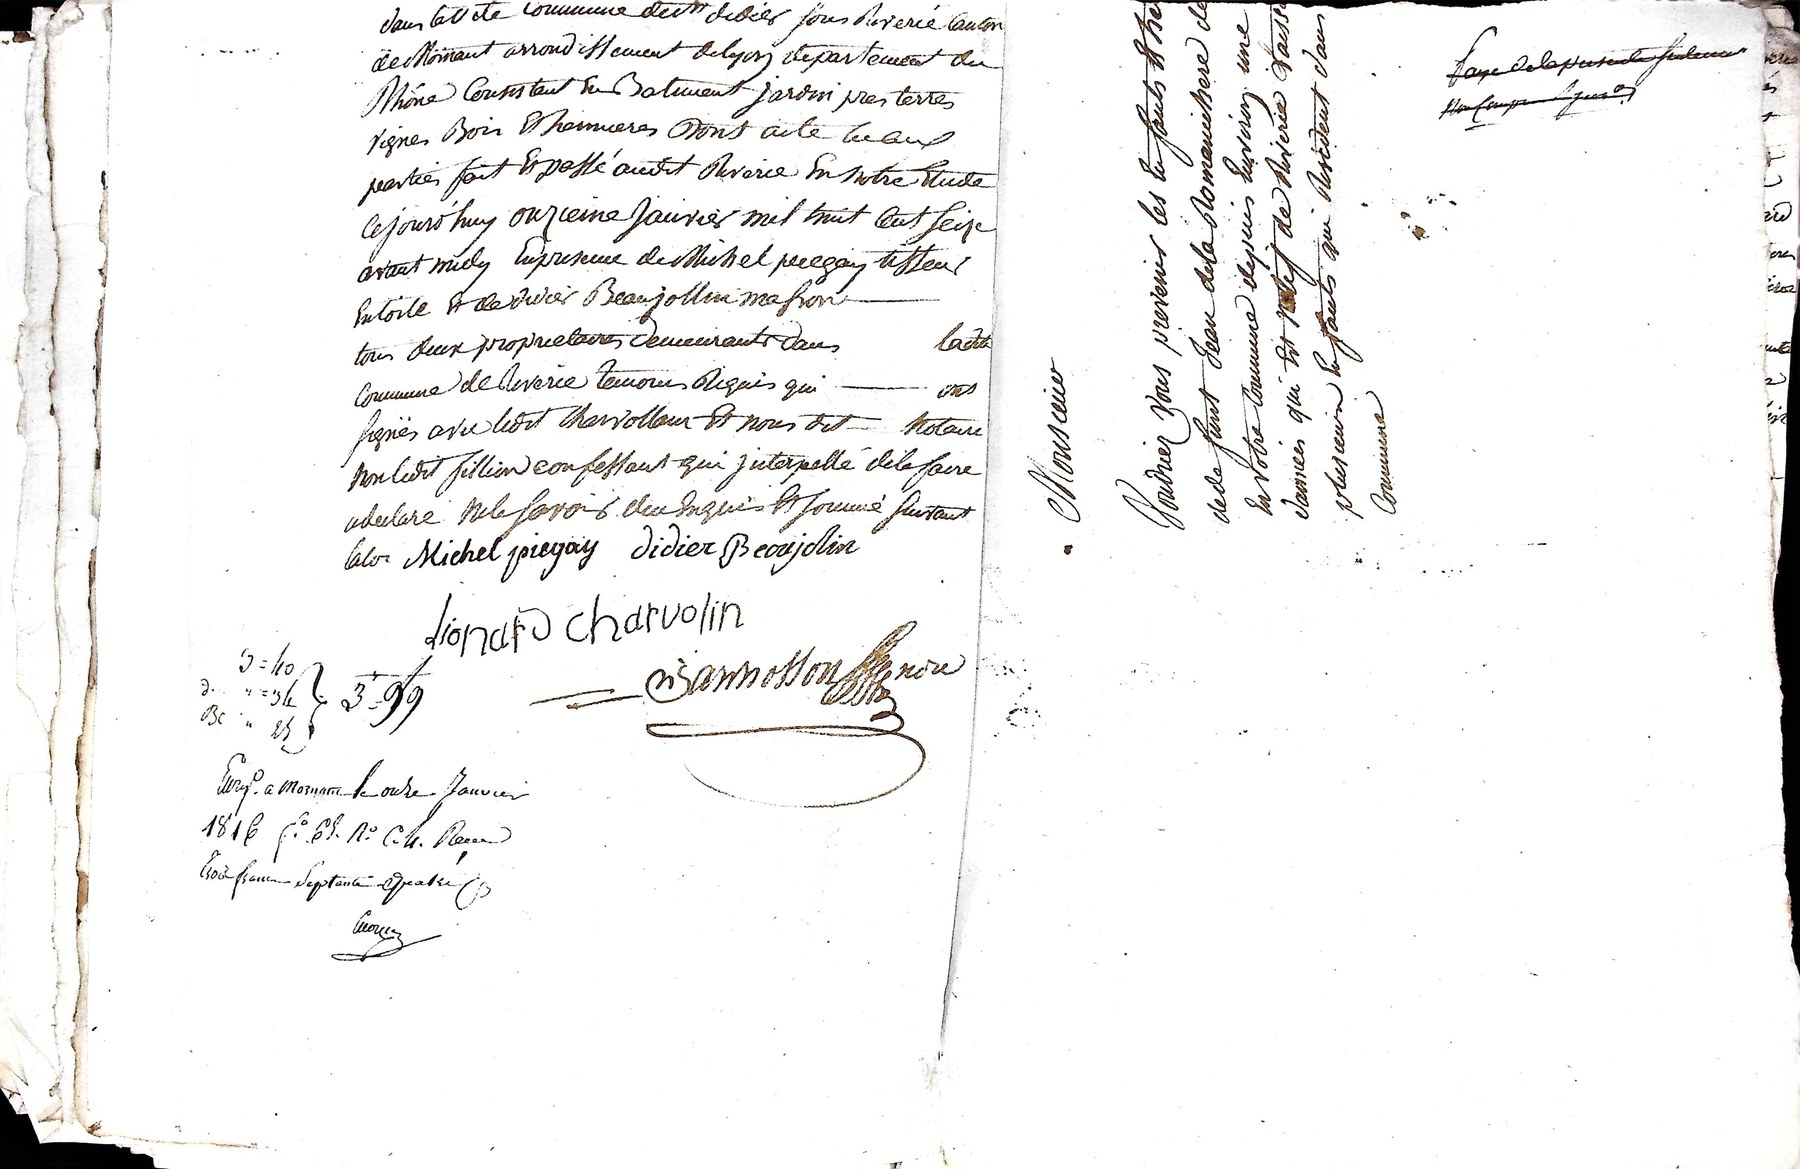 dans laditte Commune de st didier sous Riverie Canton
de Mornant arrondissement de lyon departement du
Rhône Consistant En Batiment jardin pres terres
vignes Bois Et hermieres Dont acte
parties fait Et passé audit Riverie En notre Etude
Cejourd'huy onzieme Janvier mil huit Cent seize
avant midy En presence de Michel piegay tisseur
En toile Et de didier Beaujollin masson
tous deux proprietaires demeurants dans ladite
Commune de Riverie temoins Réquis qui ont
signés avec ledit Charvollin Et nous dit Notaire
non ledit fillion confessant qui jnterpellé dele faire
adeclaré Nele savoir deu Enquis Et sommé suivant
laloi Michel piegay didier Beaujolin
lionard charvolin
3 = 40
" = 34
" 25
3 = 99
Enreg. a Mornant le onze Janvier
1816 f° N° C. 4. Recu
trois francs septante quatre
Monsieur
Voudriez Vous prevenir les Enfants Et he
dede funt Jean dela Romanichere de
En Votre Commune depuis Environ une
d'années qui Est de Riverie Laisse
plusieurs Enfants qui Resident dans
Commune